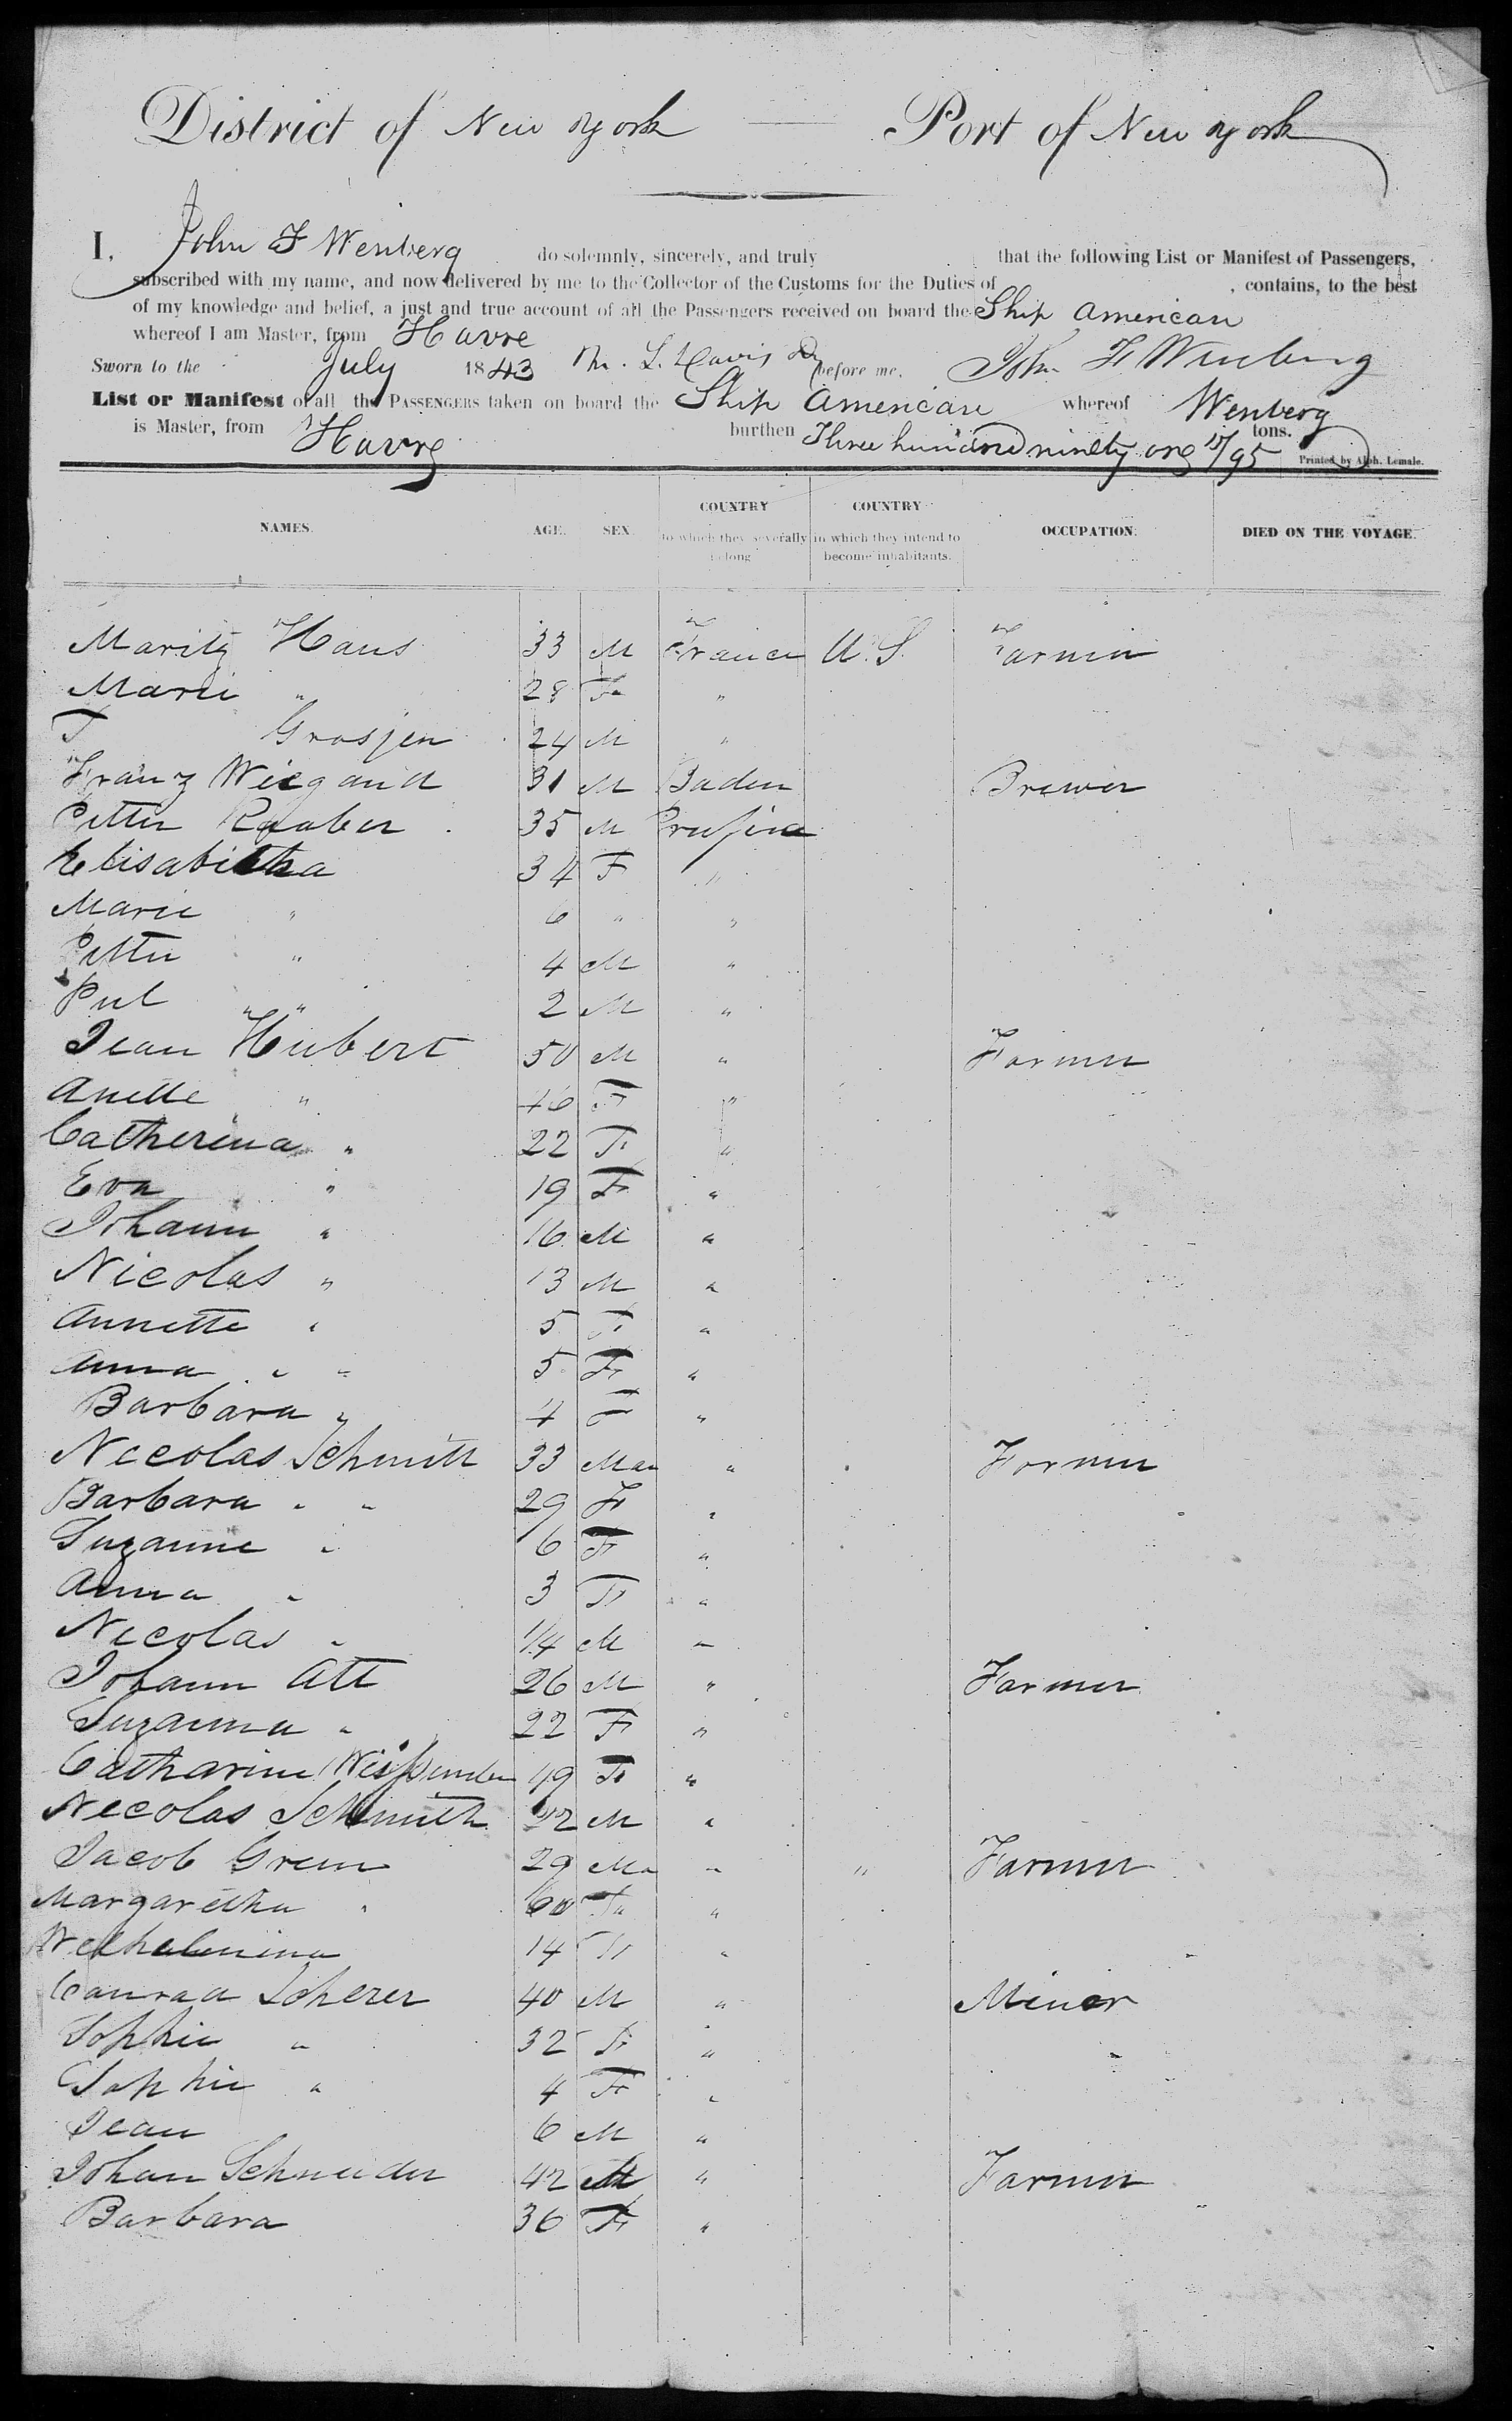 District of New York Port of New York
I, John F Wenberg do solemnly, sincerely, and truly that the following List or Manifest of Passengers,
subscribed with my name, and now delivered by me to the Collector of the Customs for the Duties of , contains, to the best
of my knowledge and belief, a just and true account of all the Passengers received on board the Ship American
whereof I am Master, from Havre
Sworn to the July 1843 Th. L. Davis Dy before me. John F Wenberg
List or Manifest of all the PASSENGERS taken on board the Ship American whereof Wenberg
is Master, from Havre burthen Three hundred ninety one /95 tons.
Printed by Alph. Lemale.
NAMES. AGE. SEX. COUNTRY to which they severally belong COUNTRY in which they intend to become inhabitants. OCCUPATION. DIED ON THE VOYAGE.
Moritz Haus 33 M France U.S. Farmer
Marie " 28 F "
Grosjen 24 M "
Franz Wiegand 31 M Baden Brewer
Petter Raaber 35 M Prussia
Elisabetha 34 F "
Marie " 6 " "
Petter " 4 M "
Pul " " 2 M "
Jean Hubert 50 M " Farmer
Anette " 46 F "
Catherina " 22 F "
Eva " 19 F "
Johann " 16 M "
Nicolas " 13 M "
Annette " 5 F "
Anna " " 5 F "
Barbara " 4 F "
Nicolas Schmitt 33 Ma " Farmer
Barbara " " 29 F "
Suzanne " 6 F "
Anna " 3 F "
Nicolas " 1/4 M "
Johann Att 26 M " Farmer
Suzanna " 22 F "
Catharine 19 F "
Nicolas Schmith 22 M "
Jacob Grem 29 Ma " " Farmer
Margaretha " 60 Fa "
Welhelmina 14 F "
Conrad Scherer 40 M " Miner
Sophie " 32 F "
Sophie " 4 F "
Jean 6 M "
Johan Schneider 42 M " Farmer
Barbara 36 F "